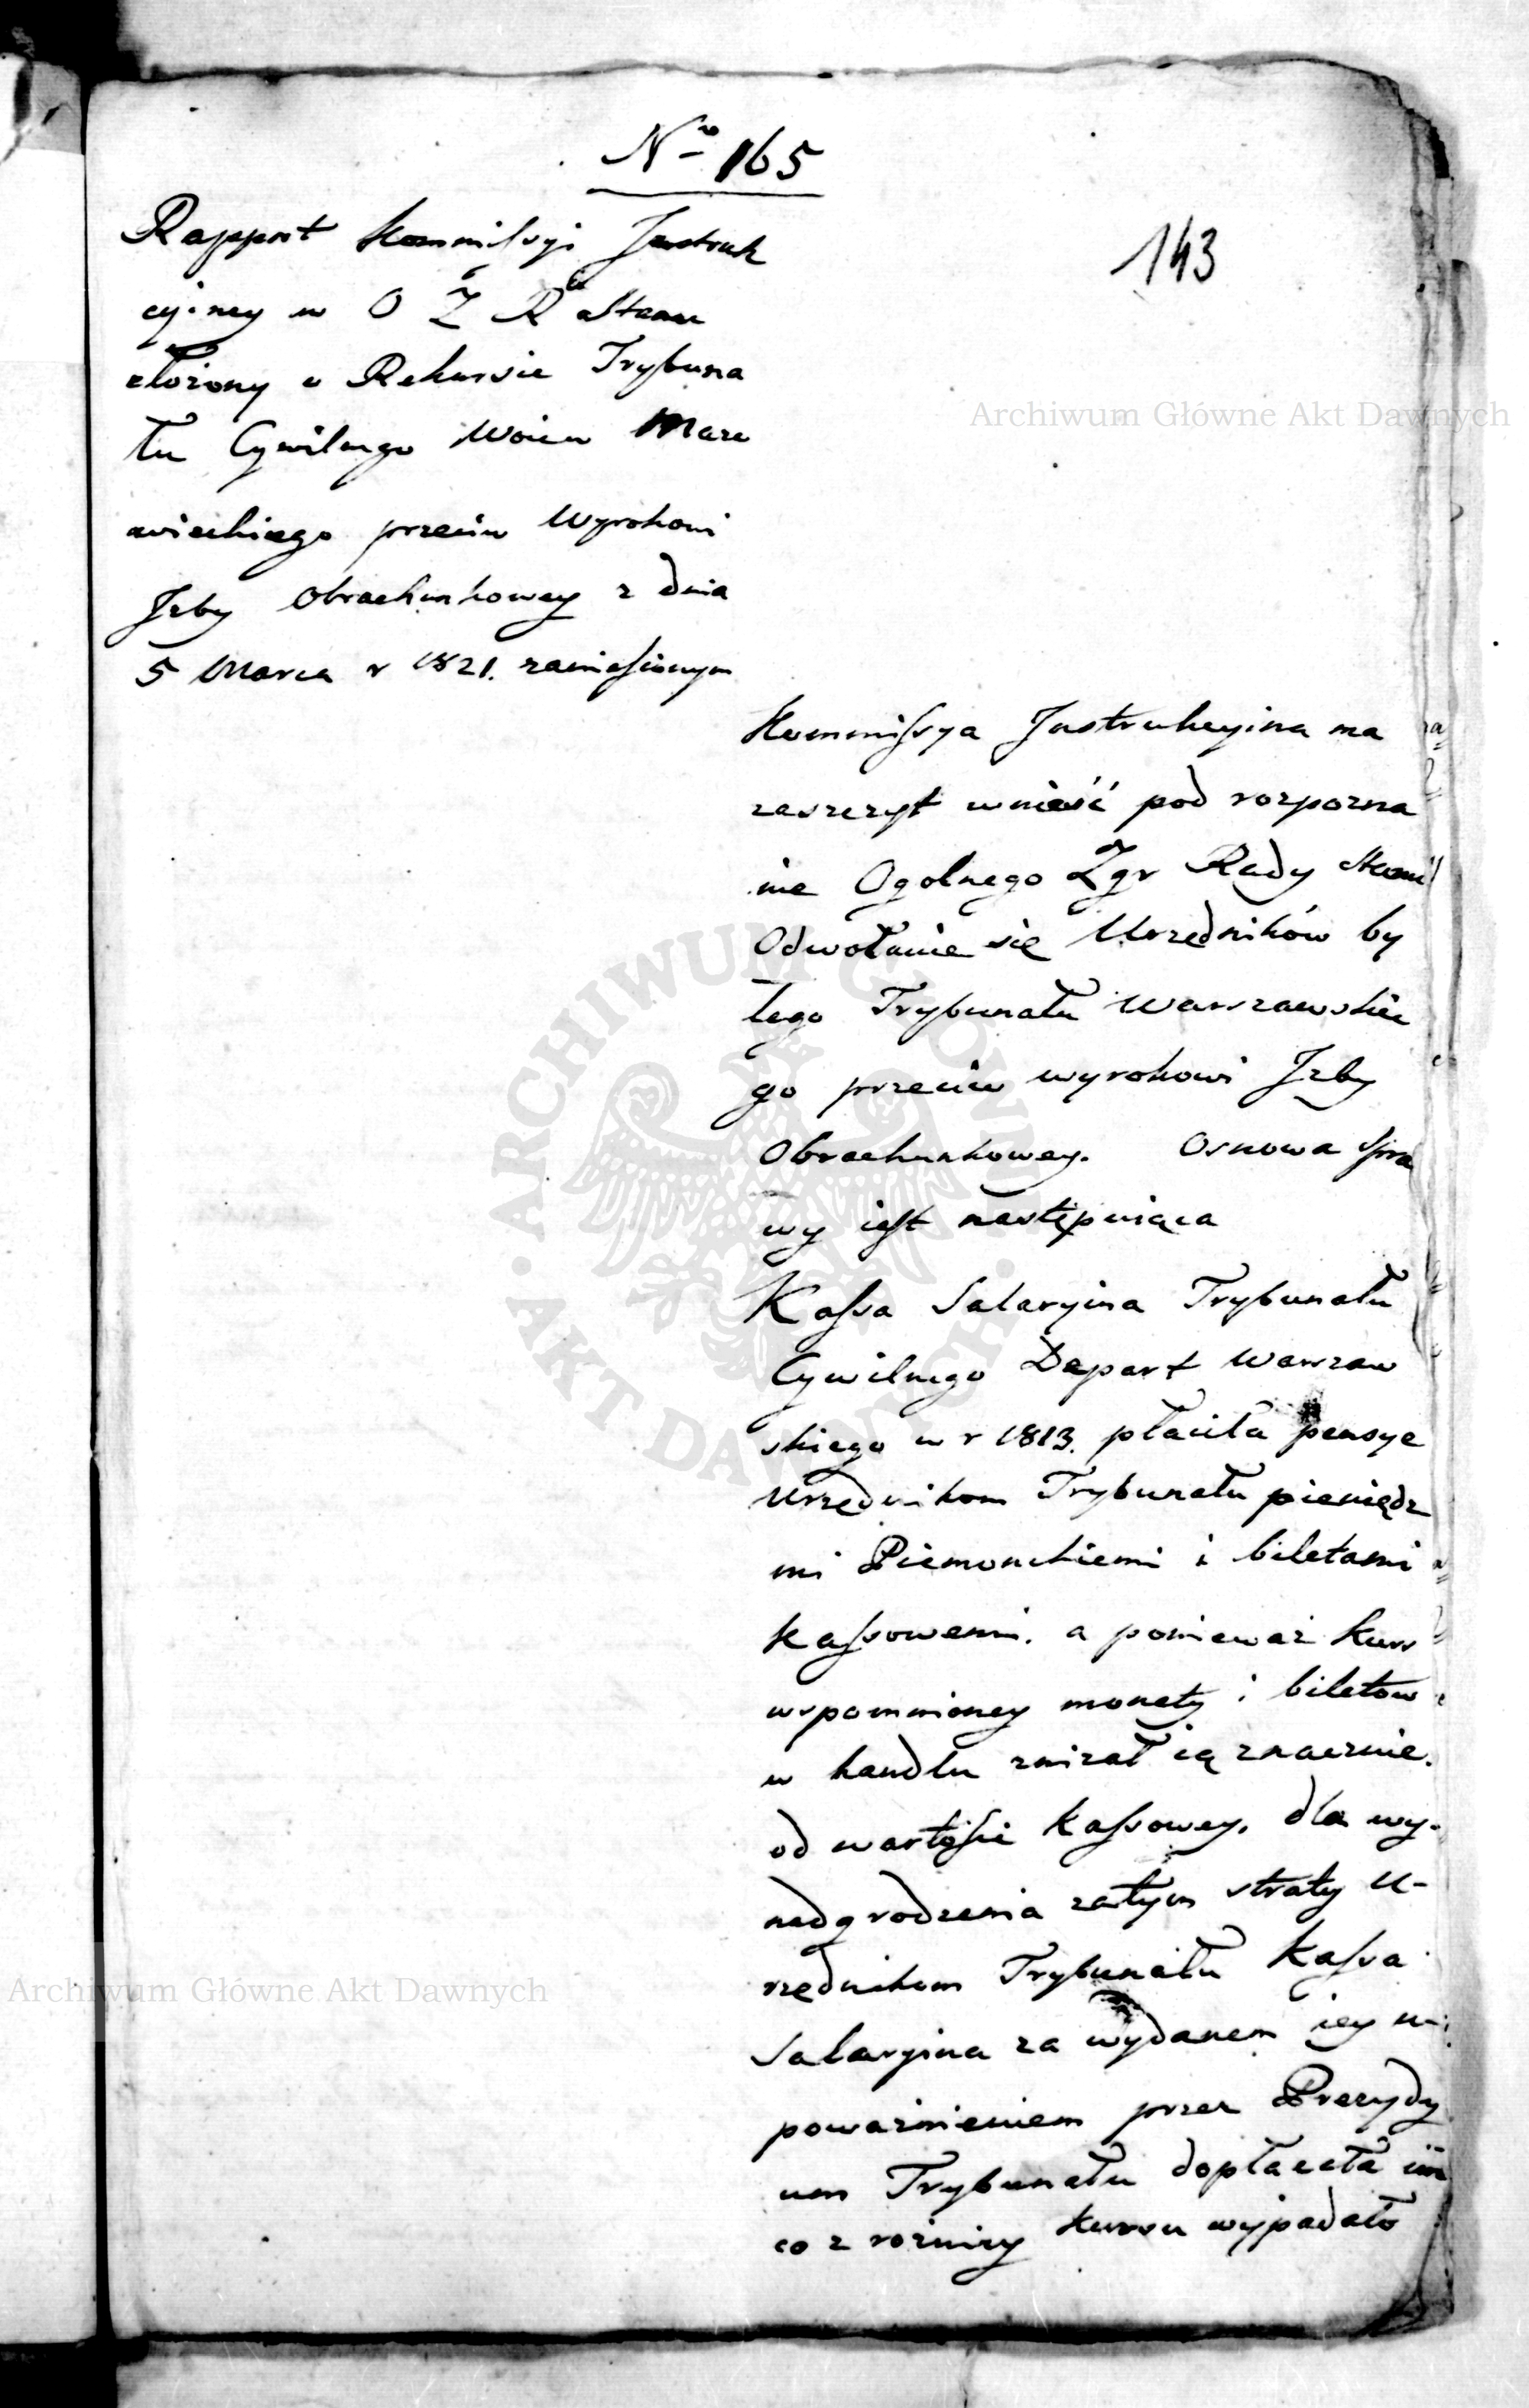 No 165
143
Rapport Kommissyi Instruk
cyiney w O Z R Stanu
złożony o Rekursie Trybuna
łu Cywilnego Woiew Mazo
wieckiego przeciw Wyrokowi
Izby Obrachunkowey z dnia
5 Marca r 1821. zaniesionym
Kommissya Instrukcyina ma
zaszczyt wnieść pod rozpozna
nie Ogolnego Zgr Rady Stanu
Odwołanie się Urzędników by
łego Trybunału Warszawskie
go przeciw wyrokowi Izby
Obrachunkowey. Osnowa spra
wy iest następuiąca
Kassa Salaryina Trybunału
Cywilnego Depart Warszaw
skiego w r 1813. płaciła pensye
Urzędnikom Trybunału pieniędz
mi Piemonckiemi i biletami
kassowemi. a ponieważ kurs
wspomnioney monety i biletow
w handlu zniżał się znacznie.
od wartości kassowey, dla wy-
nadgrodzenia zatym straty U-
rzędnikom Trybunału Kassa
Salaryina za wydanem iey u-
poważnieniem przez Prezydy
um Trybunału dopłacała im
co z rożnicy kursu wypadało
Archiwum Główne Akt Dawnych
Archiwum Główne Akt Dawnych
ARCHIWUM GŁÓWNE AKT DAWNYCH